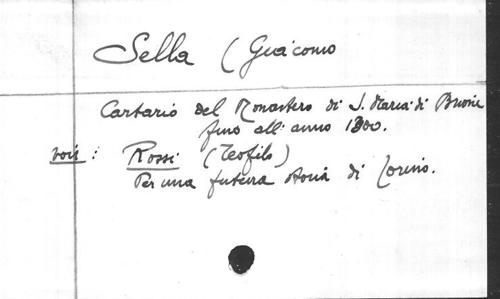 Sella (Giacomo
Cartario del Monastero di S. Maria di Buone
fino all'anno 1300.
voir : Rossi (Teofilo)
Per una futura storia di Torino.